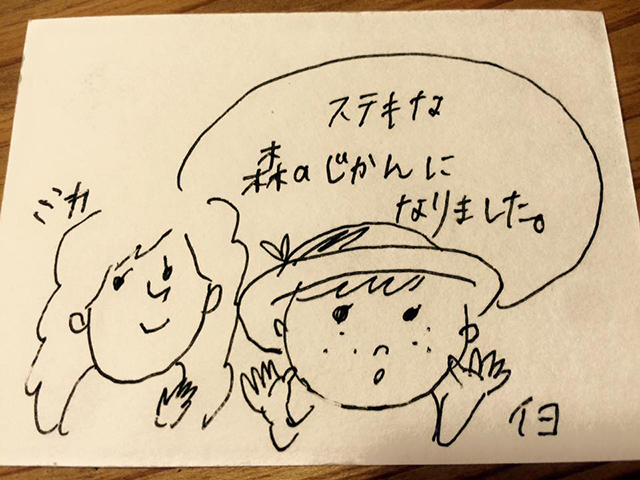 ステキな
森のじかんに
なりました。
ミカ
イヨ